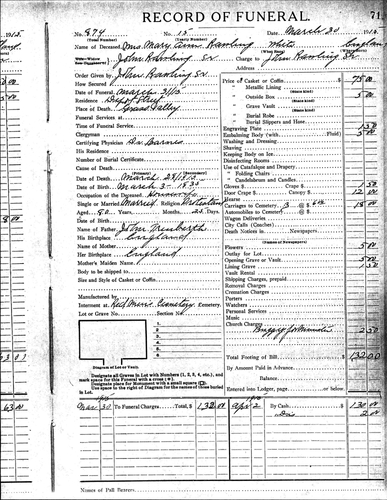 RECORD OF FUNERAL.
71
No. 879
No. 13
Date March 30 1913
(Total Number)
(Yearly Number)
Name of Deceased Mrs Mary Ann Rawling White England
John Rawling Sr
Charge to John Rawling Sr
Order Given by John Rawling Sr
How Secured
Date of Funeral March 31/13
Residence Depot Street
Place of Death Grass Valley
Funeral Services at
Time of Funeral Service
Clergyman
Certifying Physician
His Residence
Number of Burial Certificate
Cause of Death
Date of Death March 28/1913
Date of Birth March 3 - 1833
Occupation of the Deceased Housewife
Single or Married Married Religion Protestant
Aged 80 Years. Months. 25 Days.
Name of Father John
His Birthplace England
Name of Mother
Her Birthplace England
Mother's Maiden Name
Body to be shipped to
Size and Style of Casket or Coffin
Manufactured by
Interment at Red Mens Cemetery Cemetery.
Lot or Grave No. Section No.
Diagram of Lot or Vault.
Designate all Graves in Lot with Numbers (1, 2, 3, 4, etc.,) and
mark space for this Funeral with a cross (x).
Designate place for Monument with a small square (□).
Use space in the right of Diagram for the names of those buried
in Lot.
Price of Casket or Coffin $ 75 00
" Metallic Lining
(State kind)
" Outside Box 5 00
(State kind)
" Grave Vault
(State kind)
" Burial Robe
(State kind)
" Burial Slippers and Hose
Engraving Plate 1 50
Embalming Body (with Fluid) 5 00
Washing and Dressing
Shaving
Keeping Body on Ice
Disinfecting Rooms
Use of Catafalque and Drapery
" Folding Chairs
" Candelabrum and Candles
Gloves $ Crape $ 1 50
Door Crape $ Canopy $ 12 00
Hearse
Carriages to Cemetery 3 @ $ 6 00 18 00
Automobiles to Cemetery @ $
Wagon Deliveries
City Calls (Carriages)
Death Notices in Newspapers
(Names of Newspapers)
Flowers 5 00
Outlay for Lot
Opening Grave or Vault 5 00
Lining Grave 1 50
Vault Rental
Shipping Charges, prepaid
Removal Charges
Cremation Charges
Porters
Watchers
Personal Services
Music
Church Charges
Buggy for Minister 2 50
Total Footing of Bill $ 132 00
By Amount Paid in Advance
Balance
Entered into Ledger, page or below.
Mar 30 To Funeral Charges Total, $ 132 00
Apr 2 By Cash $ 130 00
Dis 2 00
Names of Pall Bearers.